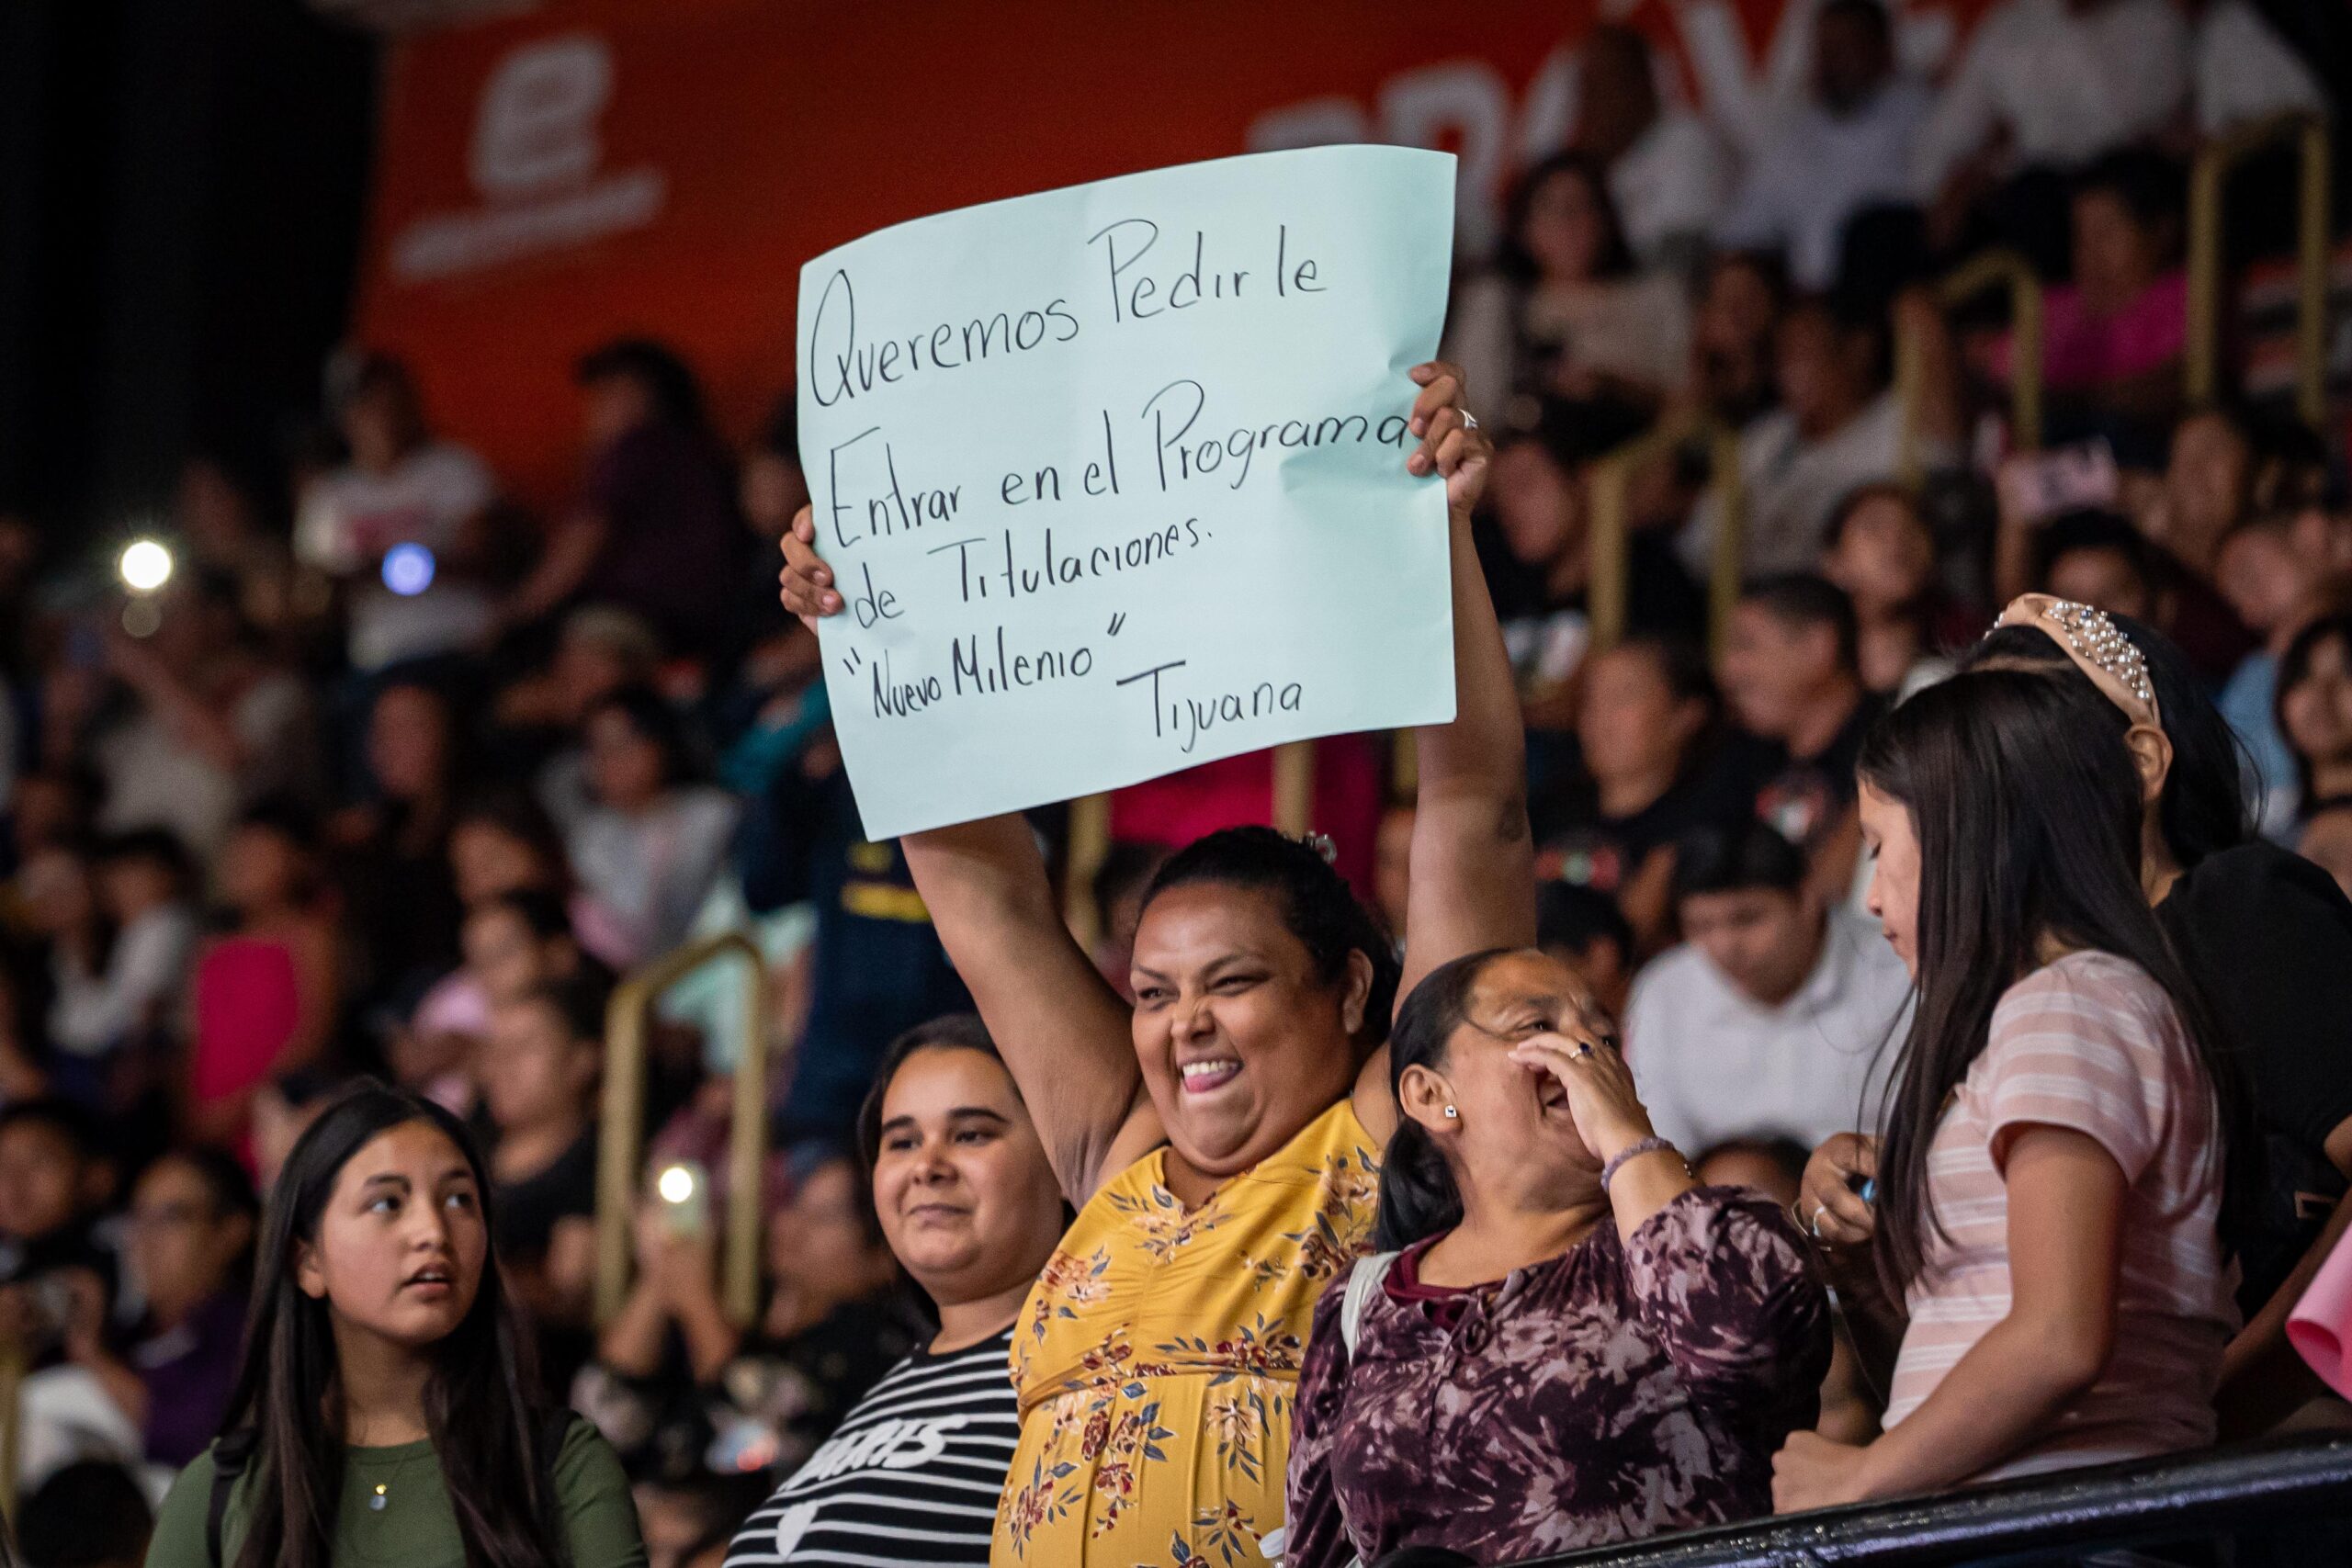 Queremos Pedirle
Entrar en el Programa
de Titulaciones.
"Nuevo Milenio"
Tijuana
e